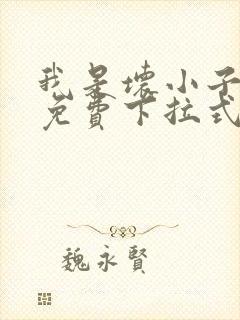 我是壞小子
免費下拉式
魏永賢